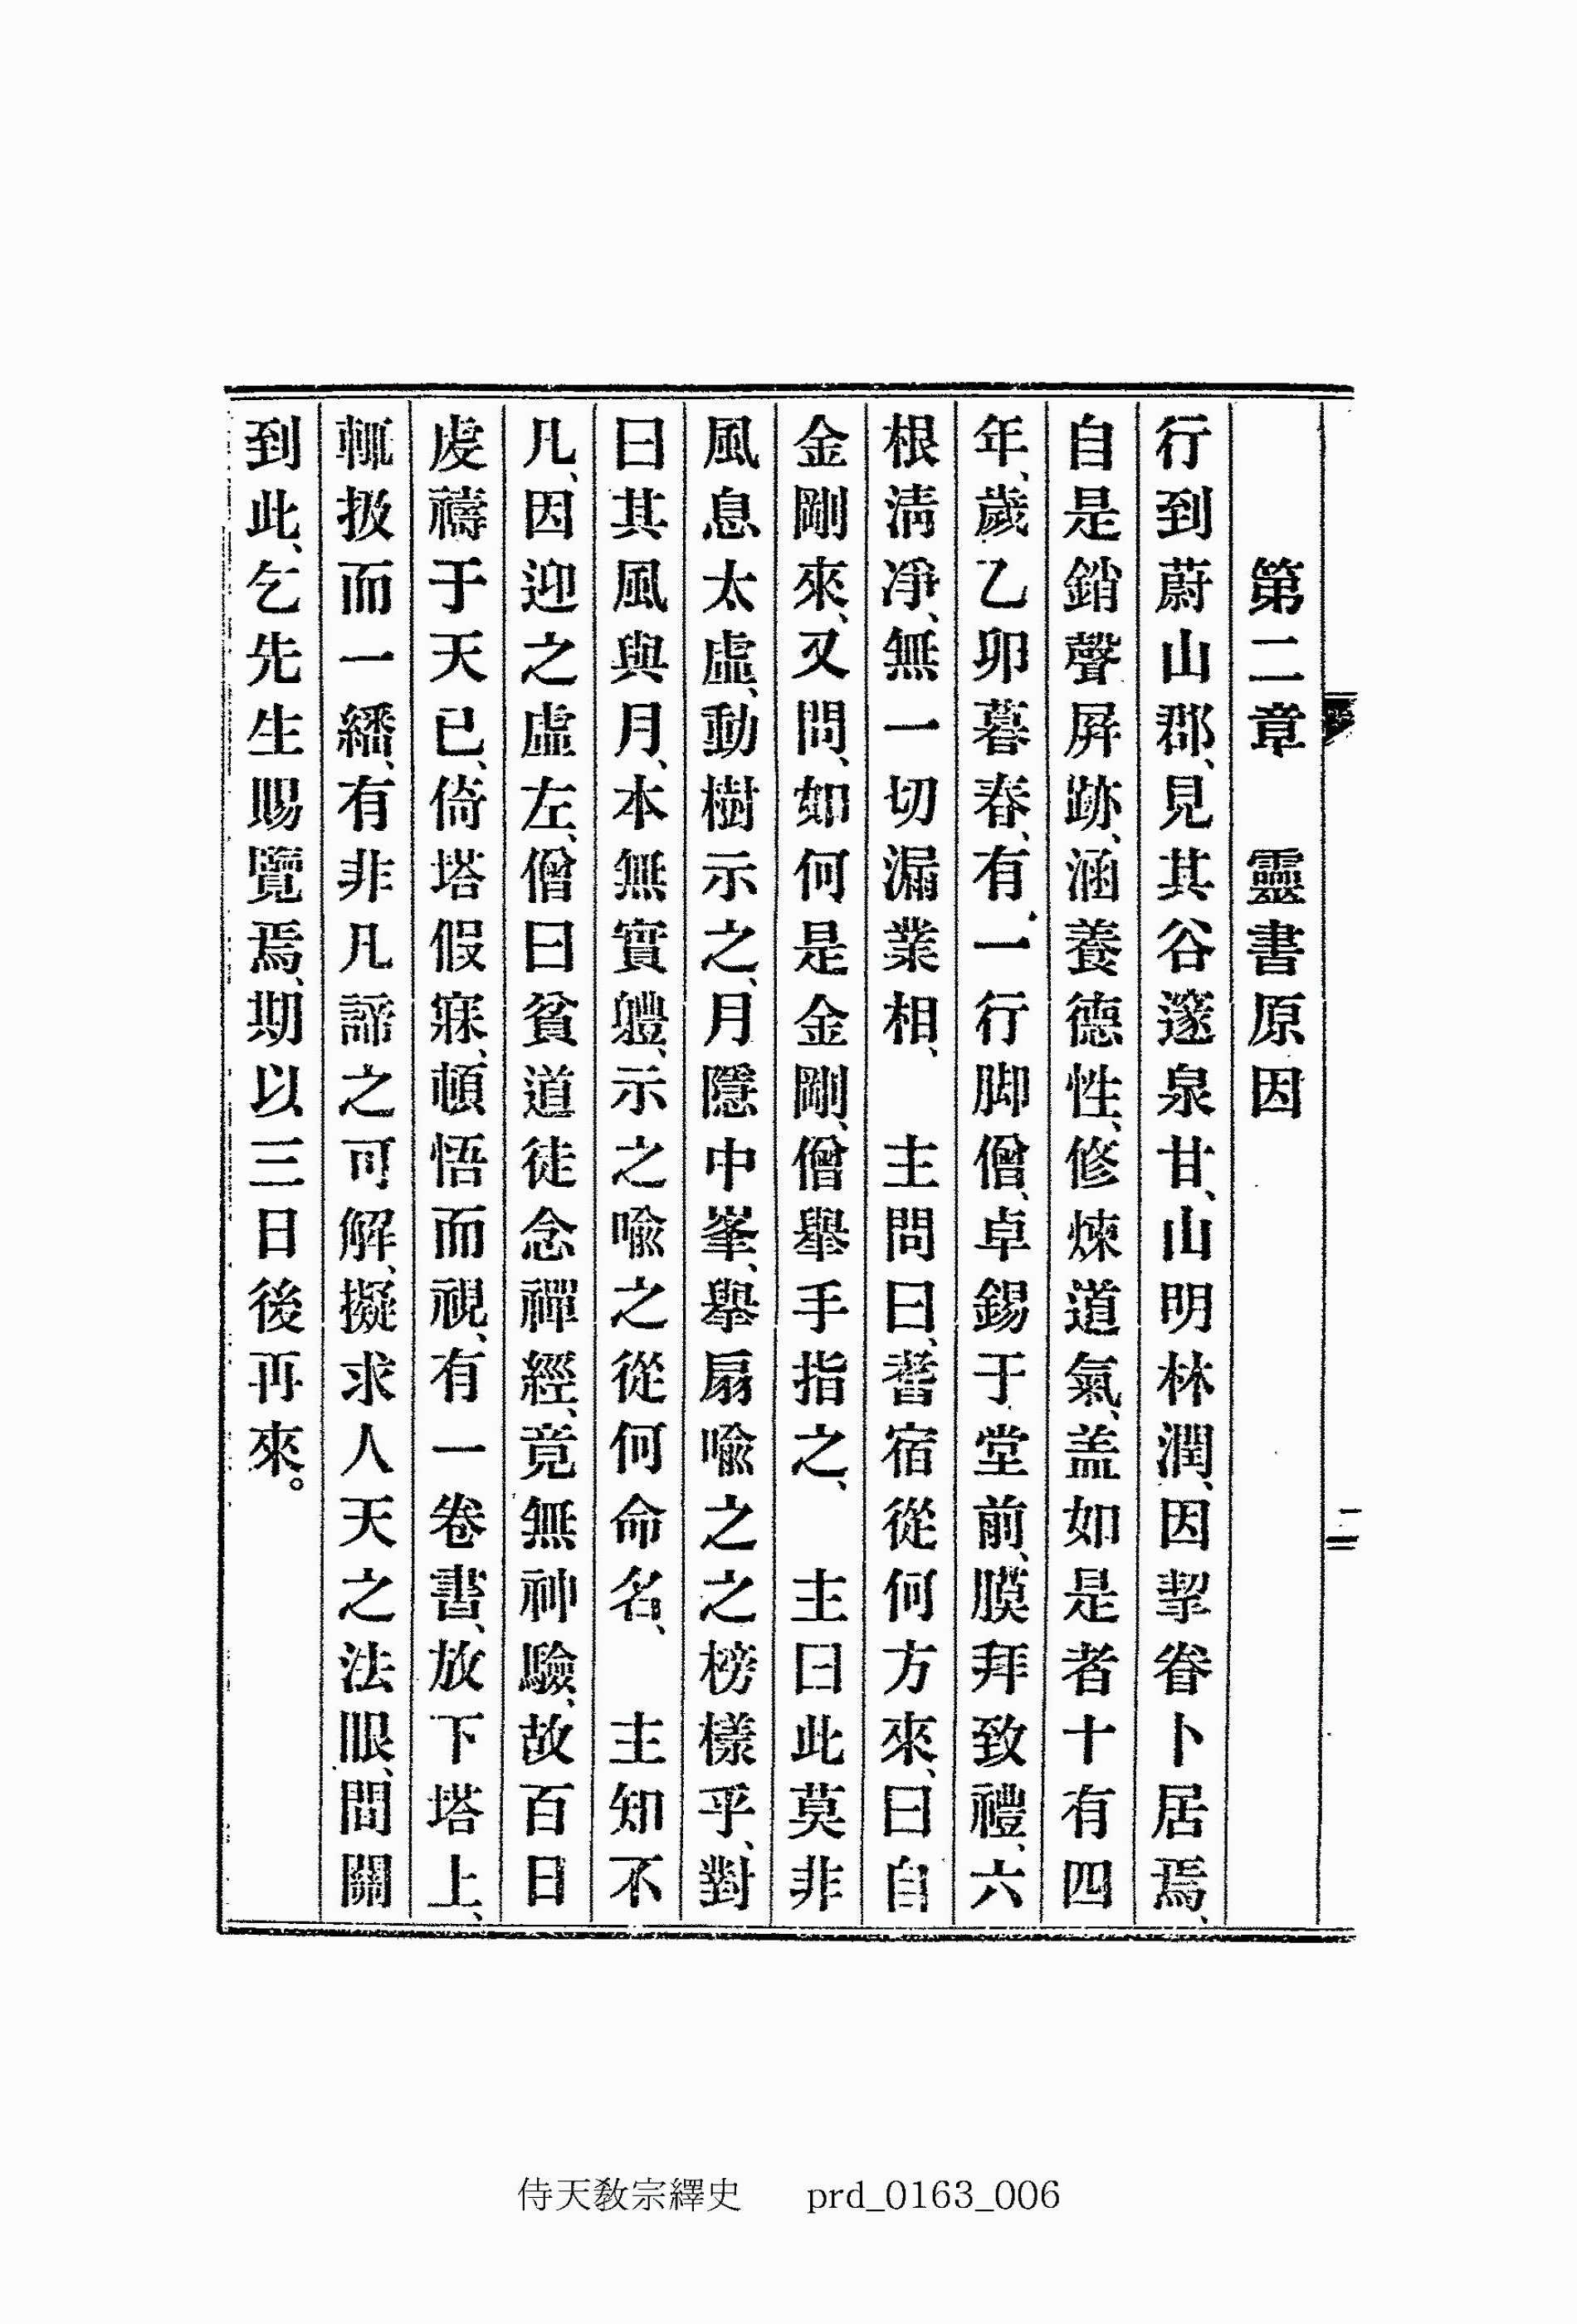 第二章　靈書原因
行到蔚山郡、見其谷邃泉甘、山明林潤、因挈眷卜居焉、
自是銷聲屛跡、涵養德性、修煉道氣、盖如是者十有四
年、歲乙卯暮春、有一行脚僧、卓錫于堂前、膜拜致禮、六
根淸凈、無一切漏業相、　主問曰、耆宿從何方來、曰自
金剛來、又問、如何是金剛、僧擧手指之、　主曰此莫非
風息太虛、動樹示之、月隱中峯、擧扇喩之之榜樣乎、對
曰其風與月、本無實軆、示之喩之從何命名、　主知不
凡、因迎之虛左、僧曰貧道徒念禪經、竟無神驗、故百日
虔禱于天已、倚塔假寐、頓悟而視、有一卷書、放下塔上、
輒扱而一繙、有非凡諦之可解、擬求人天之法眼、間關
到此、乞先生賜覽焉、期以三日後再來。
二
侍天敎宗繹史　prd_0163_006